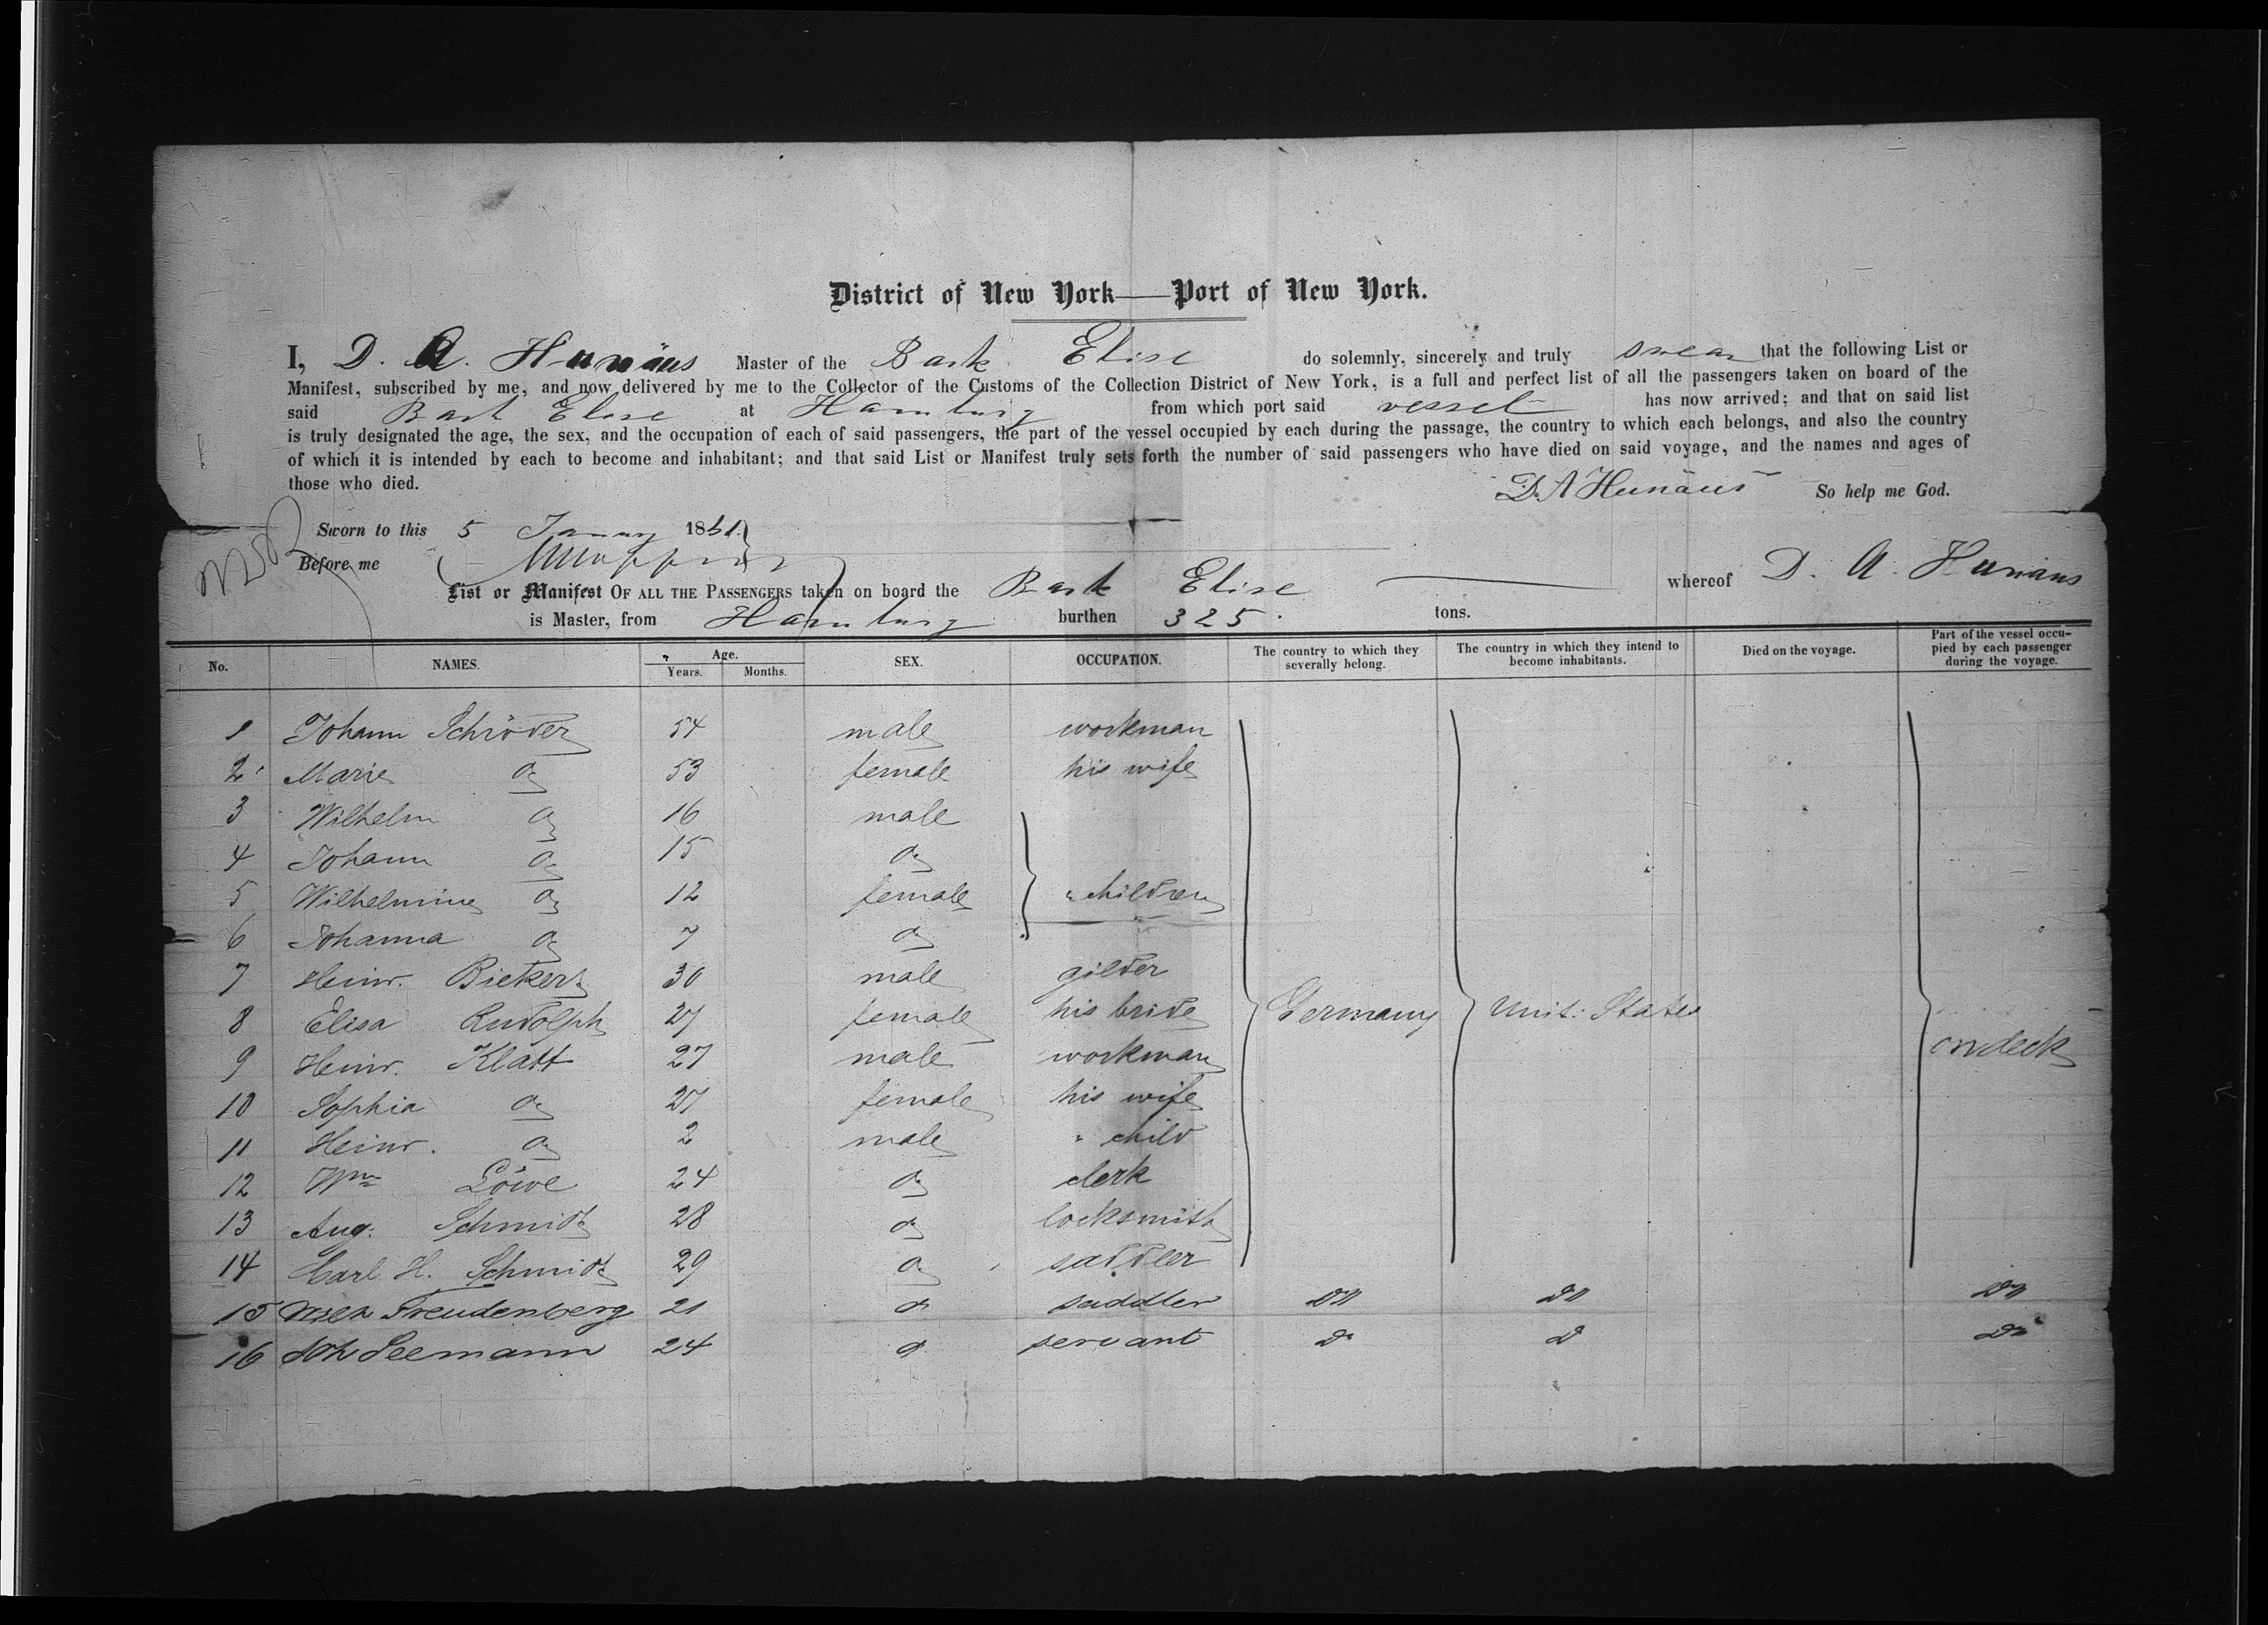 District of New York—Port of New York.
I, D. A. Hunäus Master of the Bark Elise do solemnly, sincerely and truly swear that the following List or
Manifest, subscribed by me, and now delivered by me to the Collector of the Customs of the Collection District of New York, is a full and perfect list of all the passengers taken on board of the
said Bark Elise at Hamburg from which port said vessel has now arrived; and that on said list
is truly designated the age, the sex, and the occupation of each of said passengers, the part of the vessel occupied by each during the passage, the country to which each belongs, and also the country
of which it is intended by each to become and inhabitant; and that said List or Manifest truly sets forth the number of said passengers who have died on said voyage, and the names and ages of
those who died. D. A Hunäus So help me God.
Sworn to this 5 1861
Before me
List or Manifest OF ALL THE PASSENGERS taken on board the Bark Elise whereof D. A. Hunäus
is Master, from Hamburg burthen 325. tons.
No. NAMES. Age. Years. Months. SEX. OCCUPATION. The country to which they severally belong. The country in which they intend to become inhabitants. Died on the voyage. Part of the vessel occupied by each passenger during the voyage.
1 Johann Schröder 54 male workman
2 Marie do 53 female his wife
3 Wilhelm do 16 male
4 Johann do 15 do
5 Wilhelmine do 12 female " children
6 Johanna do 7 do
7 Heinr. Biekert 30 male gilder
8 Elisa Rudolph 27 female his bride Germany Unit: States
9 Heinr. Klatt 27 male workman on deck
10 Sophia do 27 female his wife
11 Heinr. do 2 male " child
12 Wm Löwe 24 do clerk
13 Aug: Schmidt 28 do locksmith
14 Carl H. Schmidt 29 do saddler
15 Freudenberg 21 do saddler do do do
16 Joh Seemann 24 do servant do do do